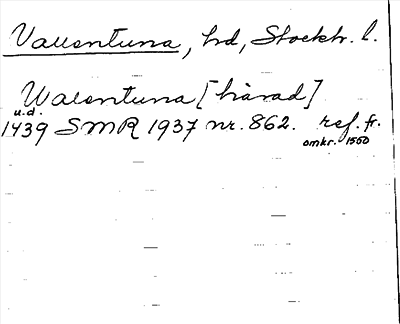 Vallentuna, hd, Stockh. l.
Walentuna [härad]
u.d.
1439 SMR 1937 nr. 862. ref. fr.
omkr. 1500